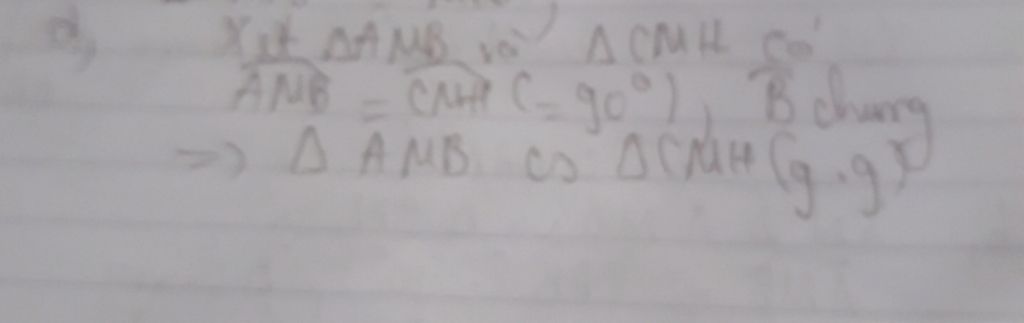 d, Xét ΔAMB và ΔCMH có
AMB = CMH (= 90°), B chung
=> Δ AMB ∽ ΔCMH (g.g)